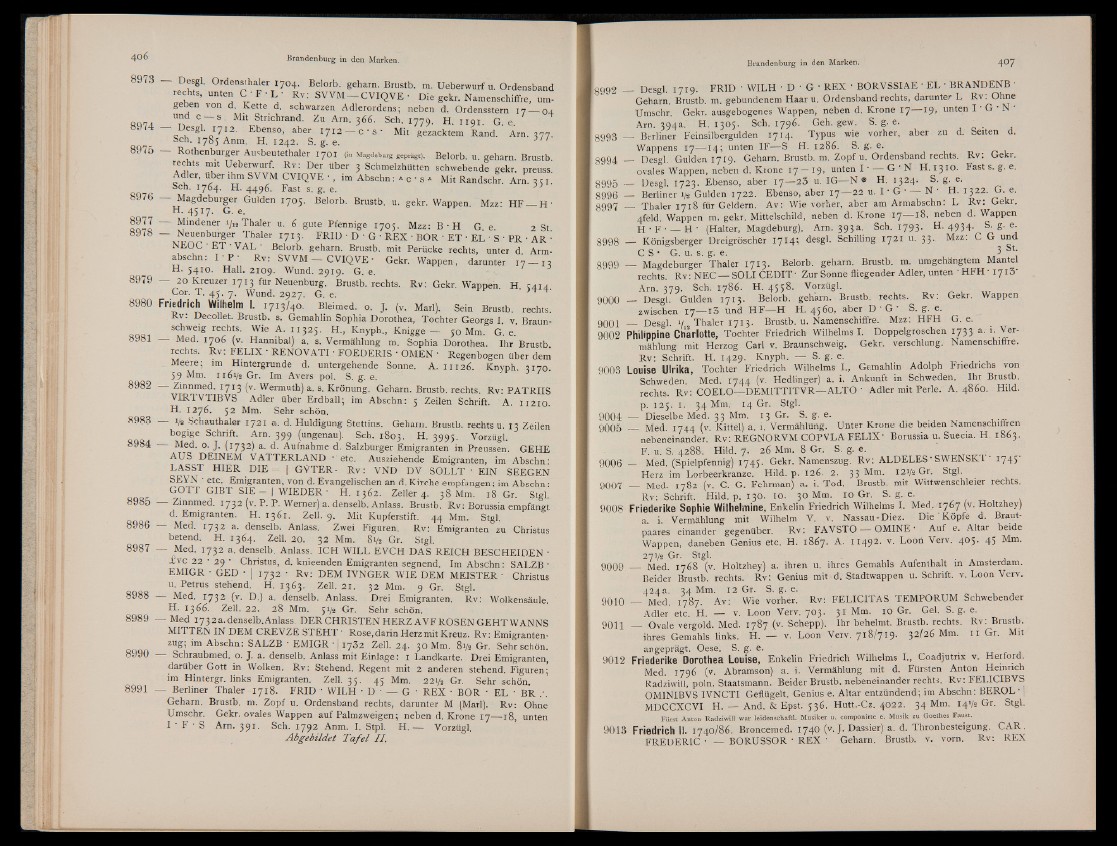 406
Brandenburg in den Marken.
8973 — Desgl. Ordensthaler 1704. Belorb. geharn. Brustb. m. Ueberwurf u. Ordensband
rechts, unten C · F · L · Rv: SVVM — CVIQVE · Die gekr. Namenschiffre, um-
geben von d. Kette d. schwarzen Adlerordens; neben d. Ordensstern 17 — 04
und c — s Mit Strichrand. Zu Arn. 366. Sch. 1779. H. 1191. G. e.
8974 — Desgl. 1712. Ebenso, aber 1712 — c · s · Mit gezacktem Rand. Arn. 377.
Sch. 1785 Anm. H. 1242. S. g. e.
8975 — Rothenburger Ausbeutethaler 1701 (in Magdeburg geprägt). Belorb. u. geharn. Brustb.
rechts mit Ueberwurf. Rv: Der über 3 Schmelzhütten schwebende gekr. preuss.
Adler, über ihm SVVM CVIQVE · , im Abschn: * c · s * Mit Randschr. Arn. 351.
Sch. 1764. H. 4496. Fast s. g. e.
8976 — Magdeburger Gulden 1705. Belorb. Brustb. u. gekr. Wappen. Mzz: HF — H ·
H. 4517. G. e.
8977 — Mindener 1/12 Thaler u. 6 gute Pfennige 1705. Mzz: B · H G. e. 2 St.
8978 — Neuenburger Thaler 1713. FRID · D · G · REX · BOR · ET · EL · S · PR · AR ·
NEOC · ET · VAL · Belorb. geharn. Brustb. mit Perücke rechts, unter d. Arm-
abschn: I · P · Rv: SVVM — CVIQVE · Gekr. Wappen, darunter 17 — 13
H. 5410. Hall. 2109. Wund. 2919. G. e.
8979 — 20 Kreuzer 1713 für Neuenburg. Brustb. rechts. Rv: Gekr. Wappen. H. 5414.
Cor. T. 45. 7. Wund. 2927. G. e.
8980 Friedrich Wilhelm I. 1713/40. Bleimed. o. J. (v. Marl). Sein Brustb. rechts.
Rv: Decollet. Brustb. s. Gemahlin Sophia Dorothea, Tochter Georgs I. v. Braun-
schweig rechts. Wie A. 11325. H., Knyph., Knigge — 50 Mm. G. e.
8981 — Med. 1706 (v. Hannibal) a. s. Vermählung m. Sophia Dorothea. Ihr Brustb.
rechts. Rv: FELIX · RENOVATI · FOEDERIS · OMEN · Regenbogen über dem
Meere; im Hintergrunde d. untergehende Sonne. A. 11126. Knyph. 3170.
59 Mm. 116½ Gr. Im Avers pol. S. g. e.
8982 — Zinnmed. 1713 (v. Wermuth) a. s. Krönung. Geharn. Brustb. rechts. Rv: PATRIIS
VIRTVTIBVS Adler über Erdball; im Abschn: 5 Zeilen Schrift. A. 11210.
H. 1276. 52 Mm. Sehr schön.
8983 — ½ Schauthaler 1721 a. d. Huldigung Stettins. Geharn. Brustb. rechts ü. 13 Zeilen
bogige Schrift. Arn. 399 (ungenau). Sch. 1803. H. 3995. Vorzügl.
8984 — Med. o. J. (1732) a. d. Aufnahme d. Salzburger Emigranten in Preussen. GEHE
AUS DEINEM VATTERLAND · etc. Ausziehende Emigranten, im Abschn:
LASST HIER DIE — | GVTER- Rv: VND DV SOLLT · EIN SEEGEN
SEYN · etc. Emigranten, von d. Evangelischen an d. Kirche empfangen; im Abschn:
GOTT GIBT SIE — | WIEDER · H. 1362. Zeller 4. 38 Mm. 18 Gr. Stgl.
8985 — Zinnmed. 1732 (v. P. P. Werner) a. denselb. Anlass. Brustb. Rv: Borussia empfängt
d. Emigranten. H. 1361. Zell. 9. Mit Kupferstift. 44 Mm. Stgl.
8986 — Med. 1732 a. denselb. Anlass. Zwei Figuren. Rv: Emigranten zu Christus
betend. H. 1364. Zell. 20. 32 Mm. 8½ Gr. Stgl.
8987 — Med. 1732 a. denselb. Anlass. ICH WILL EVCH DAS REICH BESCHEIDEN ·
LVC 22 · 29 · Christus, d. knieenden Emigranten segnend. Im Abschn: SALZB ·
EMIGR · GED · | 1732 · Rv: DEM IVNGER WIE DEM MEISTER · Christus
u. Petrus stehend. H. 1363. Zell. 21. 32 Mm. 9 Gr. Stgl.
8988 — Med. 1732 (v. D.) a. denselb. Anlass. Drei Emigranten. Rv: Wolkensäule.
H. 1366. Zell. 22. 28 Mm. 5½ Gr. Sehr schön.
8989 — Med 1732 a. denselb. Anlass DER CHRISTEN HERZ AVF ROSEN GEHT WANNS
MITTEN IN DEM CREVZE STEHT · Rose, darin Herz mit Kreuz. Rv: Emigranten-
zug; im Abschn: SALZB · EMIGR · | 1732 Zell. 24. 30 Mm. 8½ Gr. Sehr schön.
8990 — Schraubmed. o. J. a. denselb. Anlass mit Einlage: 1 Landkarte. Drei Emigranten,
darüber Gott in Wolken. Rv: Stehend. Regent mit 2 anderen stehend. Figuren;
im Hintergr. links Emigranten. Zell. 35. 45 Mm. 22½ Gr. Sehr schön.
8991 — Berliner Thaler 1718. FRID · WILH · D · — G · REX · BOR · EL · BR .·.
Geharn. Brustb. m. Zopf u. Ordensband rechts, darunter M (Marl). Rv: Ohne
Umschr. Gekr. ovales Wappen auf Palmzweigen; neben d. Krone 17—18, unten
I · F · S Arn. 391. Sch. 1792 Anm. I. Stpl. H. — Vorzügl.
Abgebildet Tafel II.
Brandenburg in den Marken.
407
8992 — Desgl. 1719. FRID · WILH · D · G · REX · BORVSSIAE · EL · BRANDENB ·
Geharn. Brustb. m. gebundenem Haar u. Ordensband rechts, darunter L Rv: Ohne
Umschr. Gekr. ausgebogenes Wappen, neben d. Krone 17—19, unten I · G · N ·
Arn. 394a. H. 1305. Sch. 1796. Geh. gew. S. g. e.
8993 — Berliner Feinsilbergulden 1714. Typus wie vorher, aber zu d. Seiten d.
Wappens 17—14; unten IF—S H. 1286. S. g. e.
8994 — Desgl. Gulden 1719. Geharn. Brustb. m. Zopf u. Ordensband rechts. Rv: Gekr.
ovales Wappen, neben d. Krone 17—19, unten I · — G · N H. 1310. Fast s. g. e.
8995 — Desgl. 1723. Ebenso, aber 17—23 u. IG—N * H. 1324. S. g. e.
8996 — Berliner ½ Gulden 1722. Ebenso, aber 17—22 u. I · G · — N · H. 1322. G. e.
8997 — Thaler 1718 für Geldern. Av: Wie vorher, aber am Armabschn: L Rv: Gekr.
4feld. Wappen m. gekr. Mittelschild, neben d. Krone 17—18, neben d. Wappen
H · F · — H · (Halter, Magdeburg). Arn. 393a. Sch. 1793. H. 4934. S. g. e.
8998 — Königsberger Dreigröscher 1714; desgl. Schilling 1721 u. 33. Mzz: C G und
C S · G. u. s. g. e. 3 St.
8999 — Magdeburger Thaler 1713. Belorb. geharn. Brustb. m. umgehängtem Mantel
rechts. Rv: NEC — SOLI CEDIT · Zur Sonne fliegender Adler, unten · HFH · 1713·
Arn. 379. Sch. 1786. H. 4558. Vorzügl.
9000 — Desgl. Gulden 1713. Belorb. geharn. Brustb. rechts. Rv: Gekr. Wappen
zwischen 17—13 und HF—H H. 4560, aber D · G · S. g. e.
9001 — Desgl. 1/12 Thaler 1713. Brustb. u. Namenschiffre. Mzz: HFH G. e.
9002 Philippine Charlotte, Tochter Friedrich Wilhelms I. Doppelgroschen 1733 a. i. Ver-
mählung mit Herzog Carl v. Braunschweig. Gekr. verschlung. Namenschiffre.
Rv: Schrift. H. 1429. Knyph. — S. g. e.
9003 Louise Ulrika, Tochter Friedrich Wilhelms I., Gemahlin Adolph Friedrichs von
Schweden. Med. 1744 (v. Hedlinger) a. i. Ankunft in Schweden. Ihr Brustb.
rechts. Rv: COELO—DEMITTITVR—ALTO · Adler mit Perle. A. 4860. Hild.
p. 125. 1. 34 Mm. 14 Gr. Stgl.
9004 — Dieselbe Med. 33 Mm. 13 Gr. S. g. e.
9005 — Med. 1744 (v. Kittel) a. i. Vermählung. Unter Krone die beiden Namenschiffren
nebeneinander. Rv: REGNORVM COPVLA FELIX · Borussia u. Suecia. H. 1863.
F. u. S. 4288. Hild. 7. 26 Mm. 8 Gr. S. g. e.
9006 — Med. (Spielpfennig) 1745. Gekr. Namenszug. Rv: ALDELES · SWENSKT · 1745·
Herz im Lorbeerkranze. Hild. p. 126. 2. 33 Mm. 12½ Gr. Stgl.
9007 — Med. 1782 (v. C. G. Fehrman) a. i. Tod. Brustb. mit Wittwenschleier rechts.
Rv: Schrift. Hild. p. 130. 10. 30 Mm. 10 Gr. S. g. e.
9008 Friederike Sophie Wilhelmine, Enkelin Friedrich Wilhelms I. Med. 1767 (v. Holtzhey)
a. i. Vermählung mit Wilhelm V. v. Nassau-Diez. Die Köpfe d. Braut-
paares einander gegenüber. Rv: FAVSTO — OMINE · Auf e. Altar beide
Wappen, daneben Genius etc. H. 1867. A. 11492. v. Loon Verv. 405. 45 Mm.
27½ Gr. Stgl.
9009 — Med. 1768 (v. Holtzhey) a. ihren u. ihres Gemahls Aufenthalt in Amsterdam.
Beider Brustb. rechts. Rv: Genius mit d. Stadtwappen u. Schrift. v. Loon Verv.
424a. 34 Mm. 12 Gr. S. g. e.
9010 — Med. 1787. Av: Wie vorher. Rv: FELICITAS TEMPORUM Schwebender
Adler etc. H. — v. Loon Verv. 703. 31 Mm. 10 Gr. Gel. S. g. e.
9011 — Ovale vergold. Med. 1787 (v. Schepp). Ihr behelmt. Brustb. rechts. Rv: Brustb.
ihres Gemahls links. H. — v. Loon Verv. 718/719. 32/26 Mm. 11 Gr. Mit
angeprägt. Oese. S. g. e.
9012 Friederike Dorothea Louise, Enkelin Friedrich Wilhelms I., Coadjutrix v. Herford.
Med. 1796 (v. Abramson) a. i. Vermählung mit d. Fürsten Anton Heinrich
Radziwill, poln. Staatsmann. Beider Brustb. nebeneinander rechts. Rv: FELICIBVS
OMINIBVS IVNCTI Geflügelt. Genius e. Altar entzündend; im Abschn: BEROL · |
MDCCXCVI H. — And. & Epst. 536. Hutt.-Cz. 4022. 34 Mm. 14½ Gr. Stgl.
Fürst Anton Radziwill war leidenschaftl. Musiker u. componirte e. Musik zu Goethes Faust.
9013 Friedrich II. 1740/86. Broncemed. 1740 (v. J. Dassier) a. d. Thronbesteigung. CAR .
FREDERIC · — BORUSSOR · REX · Geharn. Brustb. v. vorn. Rv: REX